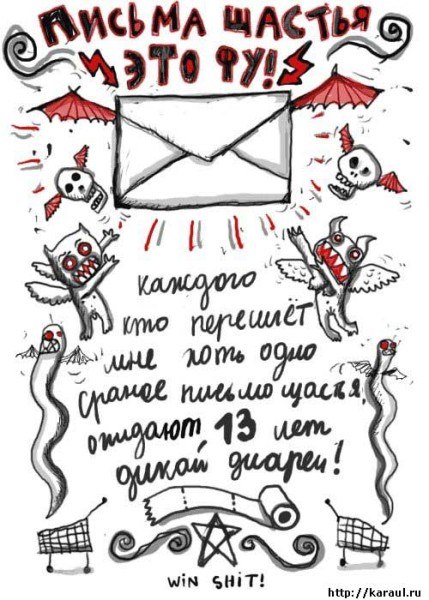 ПИСЬМА ЩАСТЬЯ
ЭТО ФУ!
каждого
кто перешлёт
мне хоть одно
сраное письмо щастья,
ожидают 13 лет
дикой диареи!
WIN SHIT!
http://karaul.ru